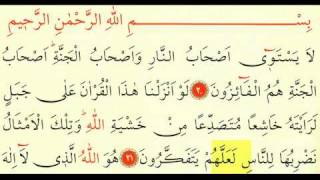 بِسْمِ اللهِ الرَّحْمٰنِ الرَّحِيمِ
لَا يَسْتَوِٓى اَصْحَابُ النَّارِ وَاَصْحَابُ الْجَنَّةِ اَصْحَابُ
الْجَنَّةِ هُمُ الْفَٓائِزُونَ ﴿٢٠﴾ لَوْ اَنْزَلْنَا هٰذَا الْقُرْاٰنَ عَلٰى جَبَلٍ
لَرَاَيْتَهُ خَاشِعًا مُتَصَدِّعًا مِنْ خَشْيَةِ اللهِ وَتِلْكَ الْاَمْثَالُ
نَضْرِبُهَا لِلنَّاسِ لَعَلَّهُمْ يَتَفَكَّرُونَ ﴿٢١﴾ هُوَ اللهُ الَّذِى لَٓا اِلٰهَ